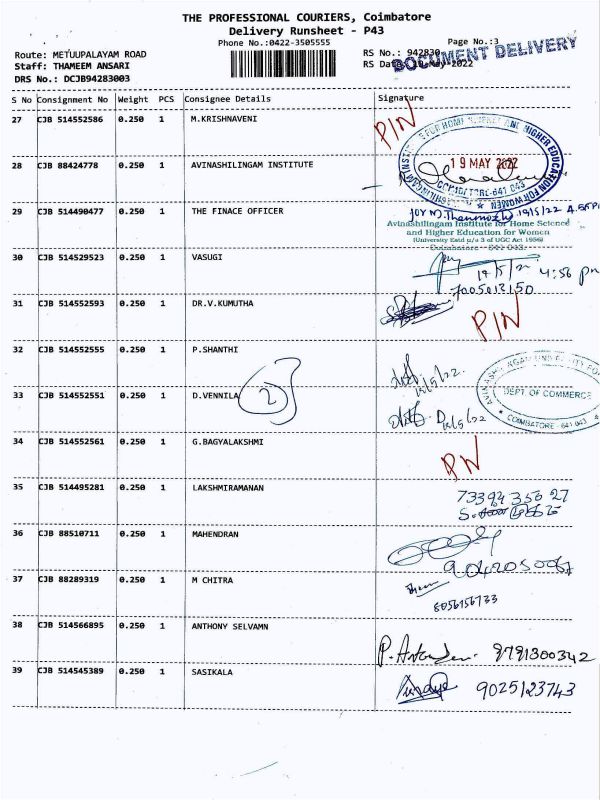 THE PROFESSIONAL COURIERS, Coimbatore
Delivery Runsheet - P43
Phone No.:0422-3505555
Page No.:3
Route: METUUPALAYAM ROAD
RS No.: 942830
DOCUMENT DELIVERY
Staff: THAMEEM ANSARI
RS Date: 19-May-2022
DRS No.: DCJB94283003
S No Consignment No Weight PCS Consignee Details Signature
27 CJB 514552586 0.250 1 M.KRISHNAVENI PIN
28 CJB 88424778 0.250 1 AVINASHILINGAM INSTITUTE
19 MAY 2022
COIMBATORE-641 043
29 CJB 514490477 0.250 1 THE FINACE OFFICER
19/5/22
Avinashilingam Institute for Home Science
and Higher Education for Women
(University Estd u/s 3 of UGC Act 1956)
Coimbatore - 641 043.
30 CJB 514529523 0.250 1 VASUGI
4:56 pm
7005013150
31 CJB 514552593 0.250 1 DR.V.KUMUTHA
PIN
32 CJB 514552555 0.250 1 P.SHANTHI
33 CJB 514552551 0.250 1 D.VENNILA 2
DEPT. OF COMMERCE
COIMBATORE - 641 043
34 CJB 514552561 0.250 1 G.BAGYALAKSHMI
PIN
35 CJB 514495281 0.250 1 LAKSHMIRAMANAN
73394 356 27
36 CJB 88510711 0.250 1 MAHENDRAN
37 CJB 88289319 0.250 1 M CHITRA
8056156733
38 CJB 514566895 0.250 1 ANTHONY SELVAMN
9791300342
39 CJB 514545389 0.250 1 SASIKALA
9025123743